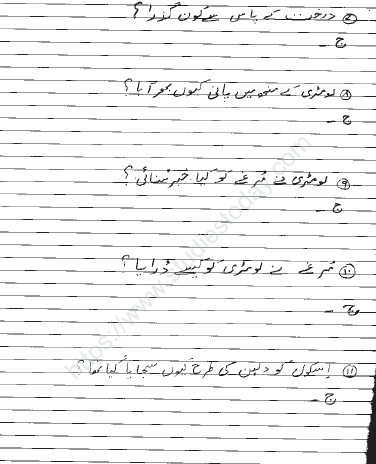 ⑦ درخت کے پاس سے کون گذرا؟
ج ۔
⑧ لومڑی کے منھ میں پانی کیوں بھر آیا؟
ج ۔
⑨ لومڑی نے مُرغے کو کیا خبر سُنائی؟
ج ۔
⑩ مُرغے نے لومڑی کو کیسے ڈرایا؟
ج ۔
⑪ اِسکول کو دلہن کی طرح کیوں سجایا گیا تھا؟
ج ۔
https://www.studiestoday.com